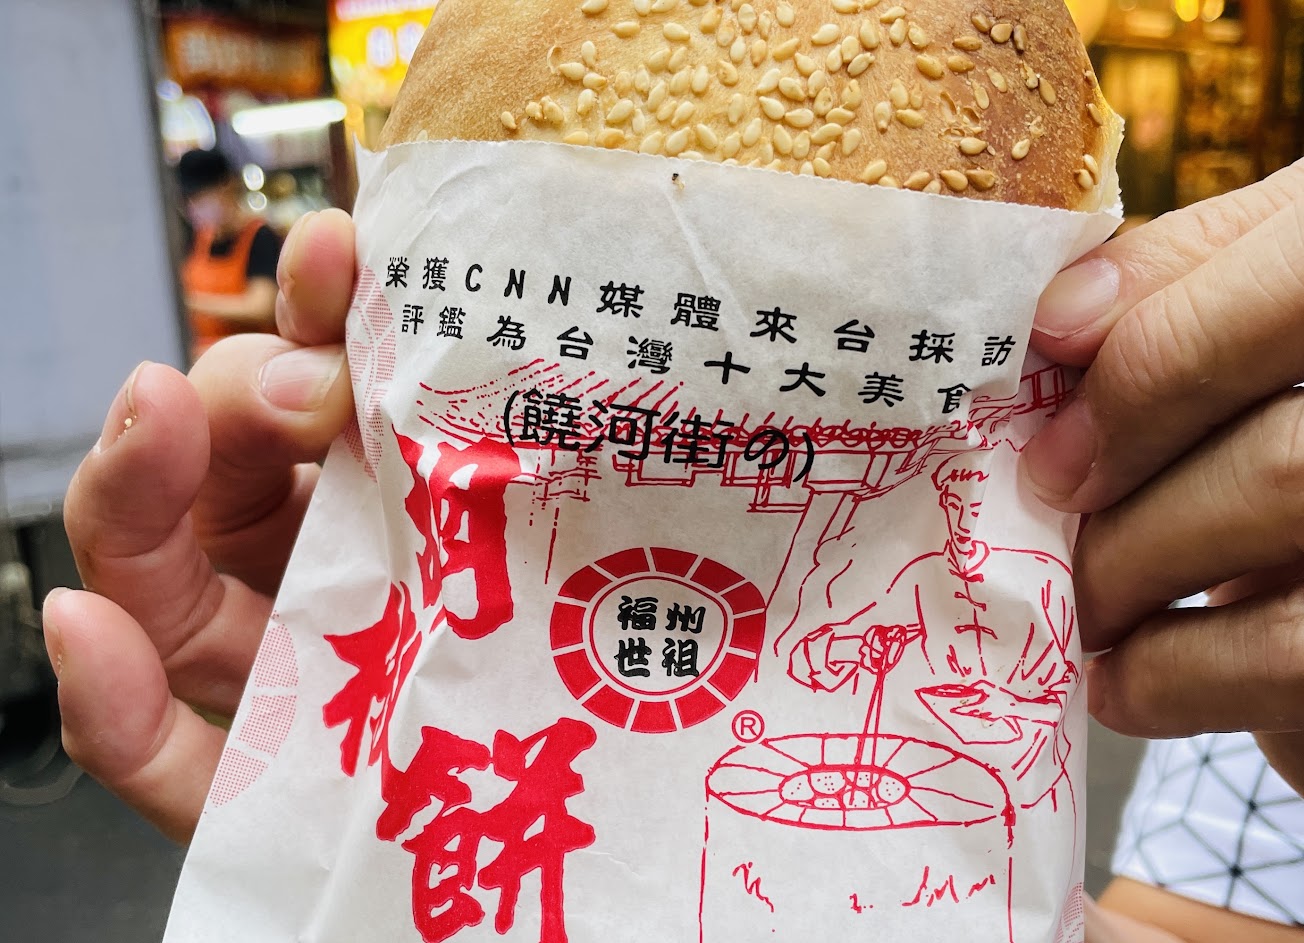 榮獲CNN媒體來台採訪
評鑑為台灣十大美食
(饒河街の)
胡椒餅
福州
世祖
®